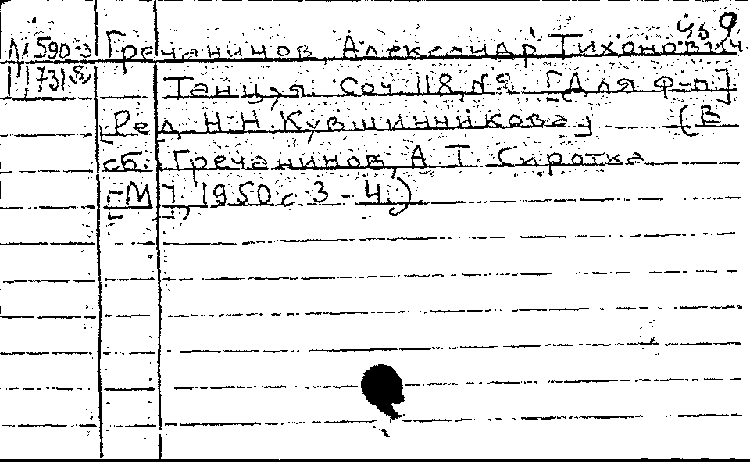 М 590-3 Гречанинов, Александр Тихонович
Танцуя. Соч. 118, № 2. [Для ф-п]
Ред. Н. Н. Кувшинникова, (В
сб.: Гречанинов А. Т. Сиротка
[М], 1950 с 3-4.)